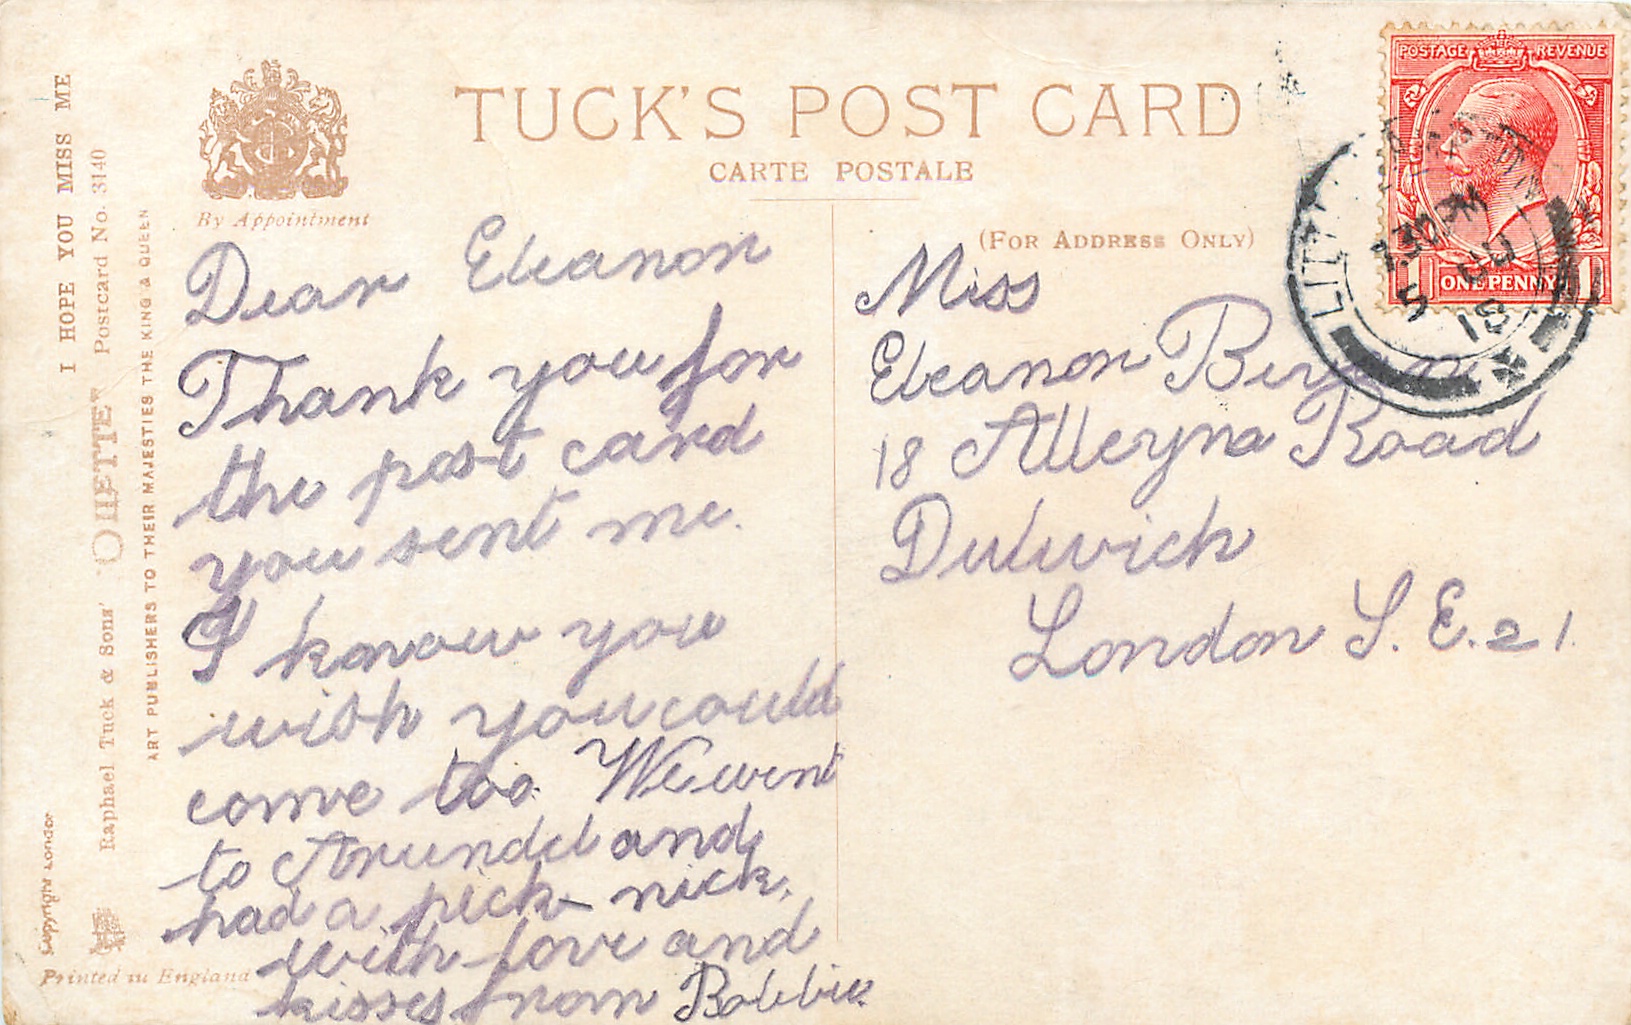 TUCK'S POST CARD
CARTE POSTALE
(FOR ADDRESS ONLY)
By Appointment
I HOPE YOU MISS ME
Raphael Tuck & Sons' "OILETTE" Postcard No. 3140
ART PUBLISHERS TO THEIR MAJESTIES THE KING & QUEEN
Copyright London
Printed in England
Dear Eleanor
Thank you for
the post card
you sent me.
I know you
wish you could
come too. We went
to Arundel and
had a pick-nick.
with love and
kisses from Robbie
Miss
Eleanor
18 Alleyna Road
Dulwich
London S.E.21.
POSTAGE REVENUE
1 ONE PENNY 1